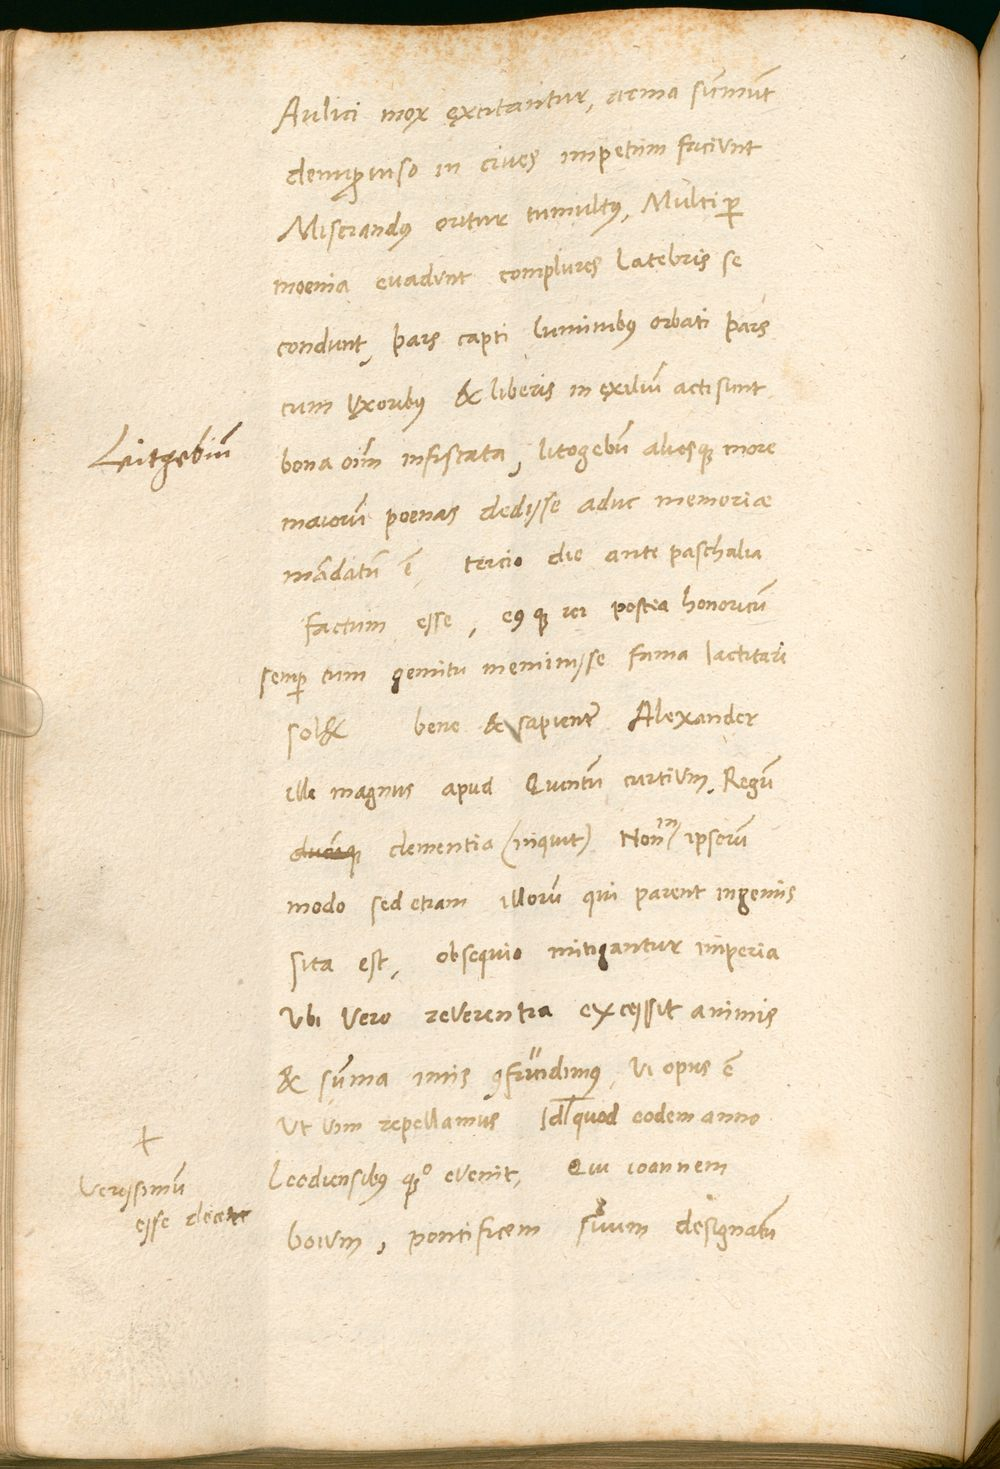 Aulici mox excitantur, arma sumūt
denuꝙ viso in cives impetum faciunt
Miserandꝰ oritur tumultꝰ, Multi ꝑ
moenia evadunt complures Latebris se
condunt, pars capti luminibꝰ orbati pars
cum uxoribꝰ & liberis in exiliū acti sunt
Leitgebiū
bona oīm infiscata, litogebū aliosqꝫ more
maiorū poenas dedisse aduc memoriae
mādatū ē, tercio die ante paschalia
factum esse, eꝰqꝫ rei postea honoricū
semꝑ cum gemitu meminisse fama iactitari
sol& bene & sapienter̄ Alexander
ille magnus apud Quintū curtium. Regū
ducūqꝫ clementia (inquit) Non in ipsorū
modo sed etiam illorū qui parent ingeniis
sita est, obsequio mitigantur imperia
Ubi vero reverentia excessit animis
& sūma imis ꝯfundimꝰ, vi opus ē
Ut vim repellamus Id quod eodem anno
Leodiensibꝰ evenit, Qui ioannem
+
Verissimū
esse docet
boium, pontificem suum designatū